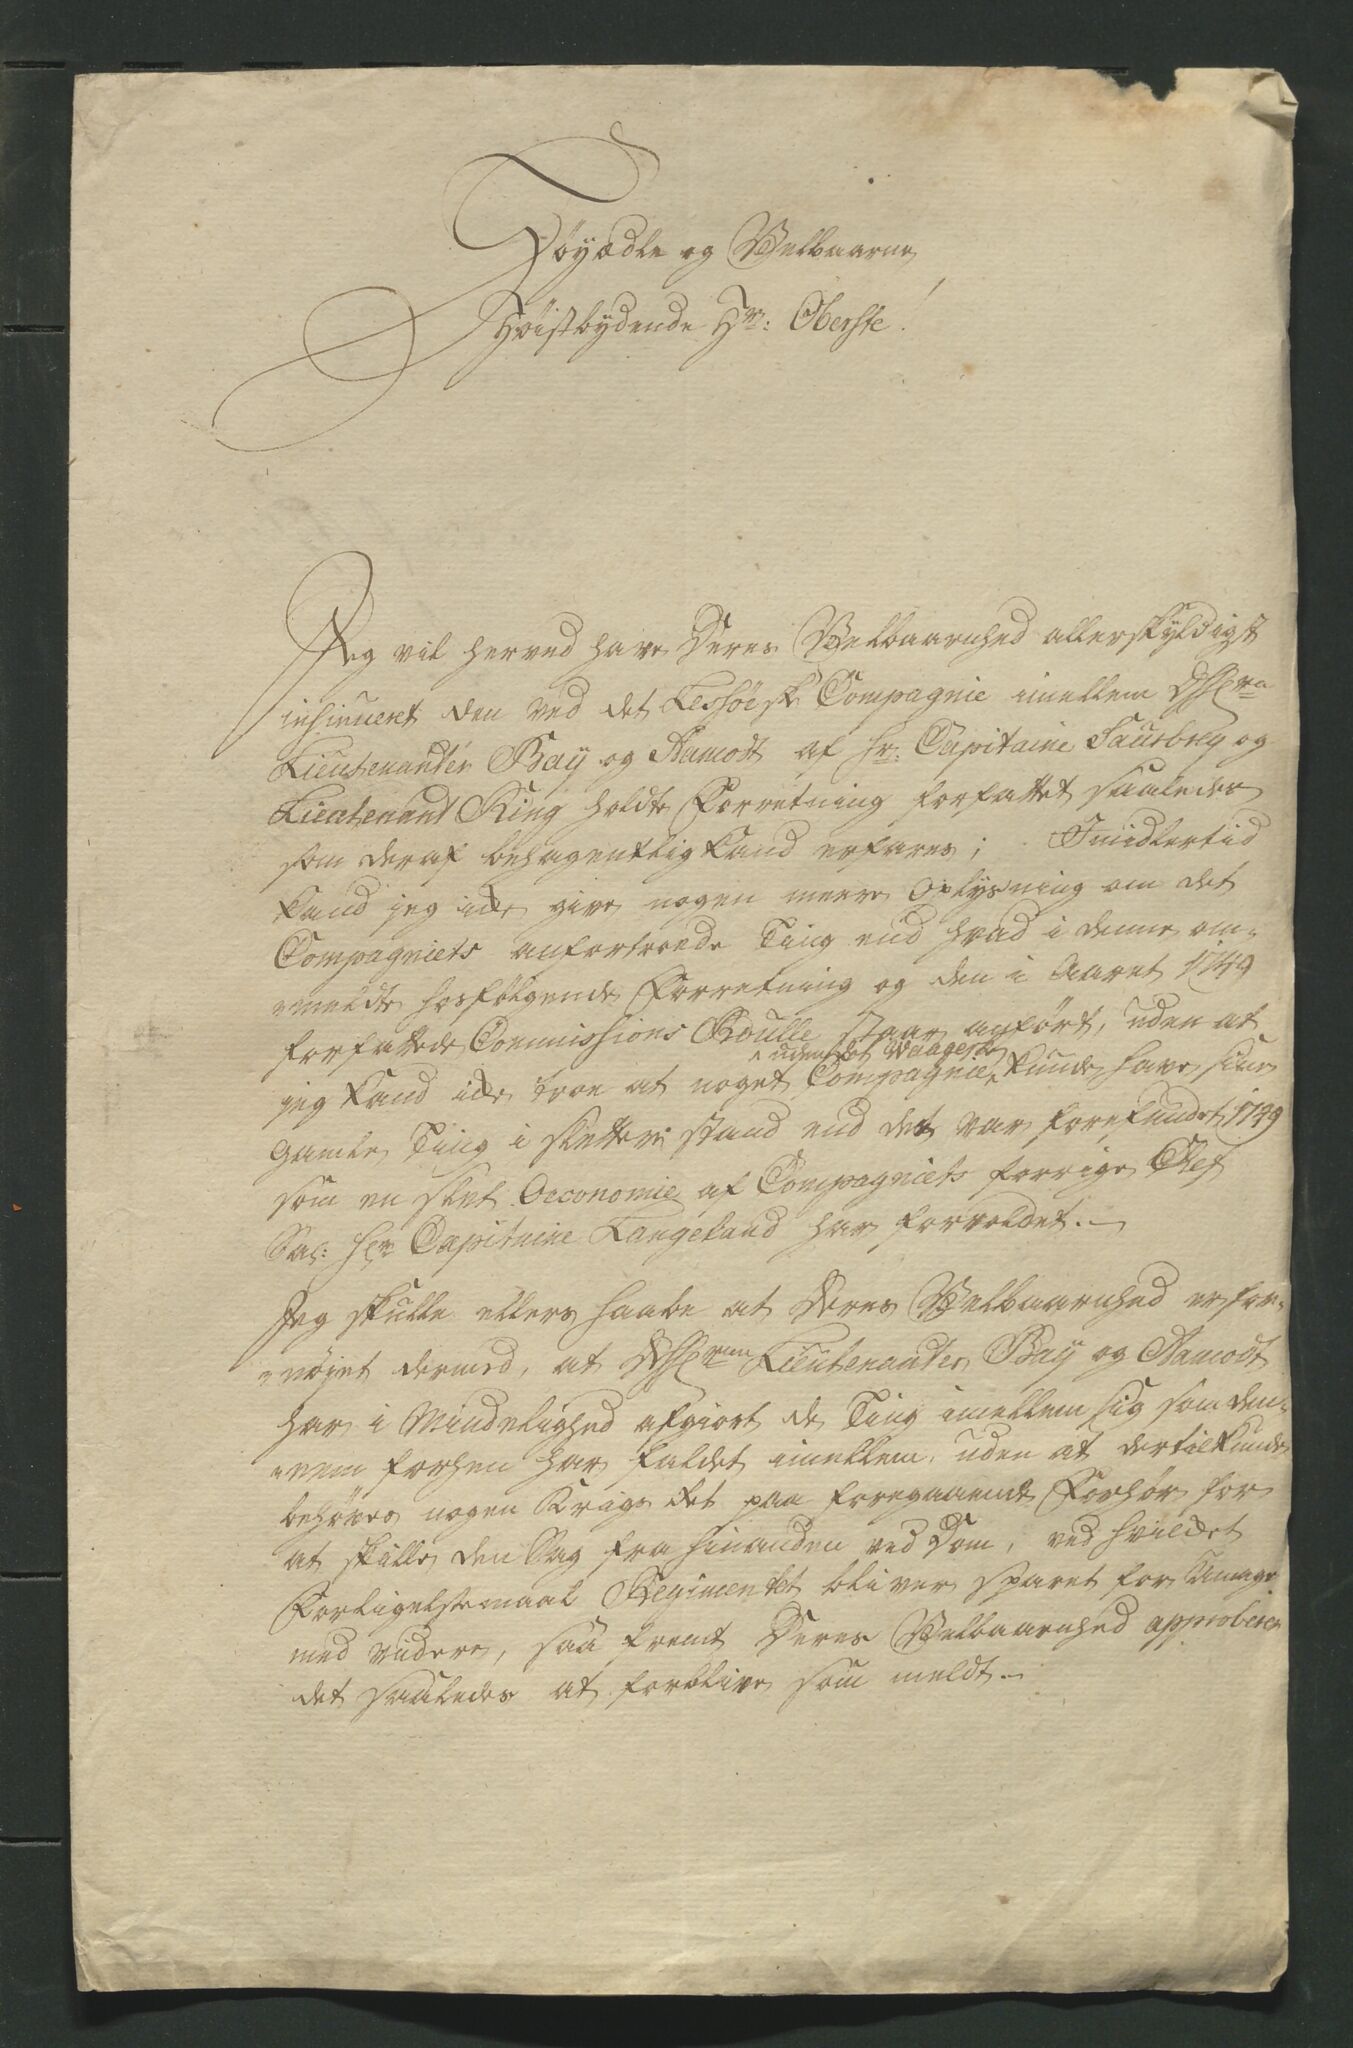 Höyædle og Velbaarne
Høistbydende Hr: Oberste!
Jeg vil herved have Deres Velbaarnhed allerskyldigst
insinueret den ved det Lessøeske Compagnie imellem
Lieutenanter Bay og Aamodt af Hr: Capitaine Saursbrey og
Lieutenant Ring holdte Forretning forfattet saaledes
som deraf behagentlig kand erfares; Imidlertid
kand jeg icke give nogen meere Oplysning om det
Compagniets anfortroede Ting end hvad i denne om-
-meldte hosfølgende Forretning og den i Aaret 1749
forfattede Commissions Roulle staar anført, uden at
jeg kand icke troe at noget Compagnie uden det Waageske kunde have sine
gamle Ting i slettere stand end det var forefundet 1749
som en slet Oeconomie af Compagniets forrige Chef
Sal: Hr Capitaine Langeland har forvoldet.
Jeg skulle ellers haabe at Deres Velbaarnhed er for-
-nøjet dermed, at Lieutenanter Bay og Aamodt
har i Mindelighed afgiort de Ting imellem sig som dem-
-nem forhen har faldet imellem, uden at dertil kunde
behøves nogen Krigs Ret paa foregaaende Forhør for
at skille den Sag fra hinanden ved Dom, ved hvilcket
Forligelsesmaal Regimentet bliver sparet for Umage
med videre, saa fremt Deres Velbaarnhed approberer
det saaledes at forblive som meldt.